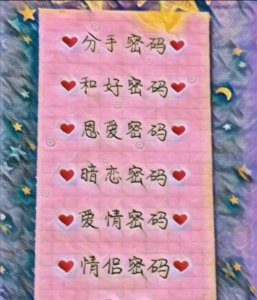 ❤分手密码❤
❤和好密码❤
❤恩爱密码❤
❤暗恋密码❤
❤爱情密码❤
❤情侣密码❤